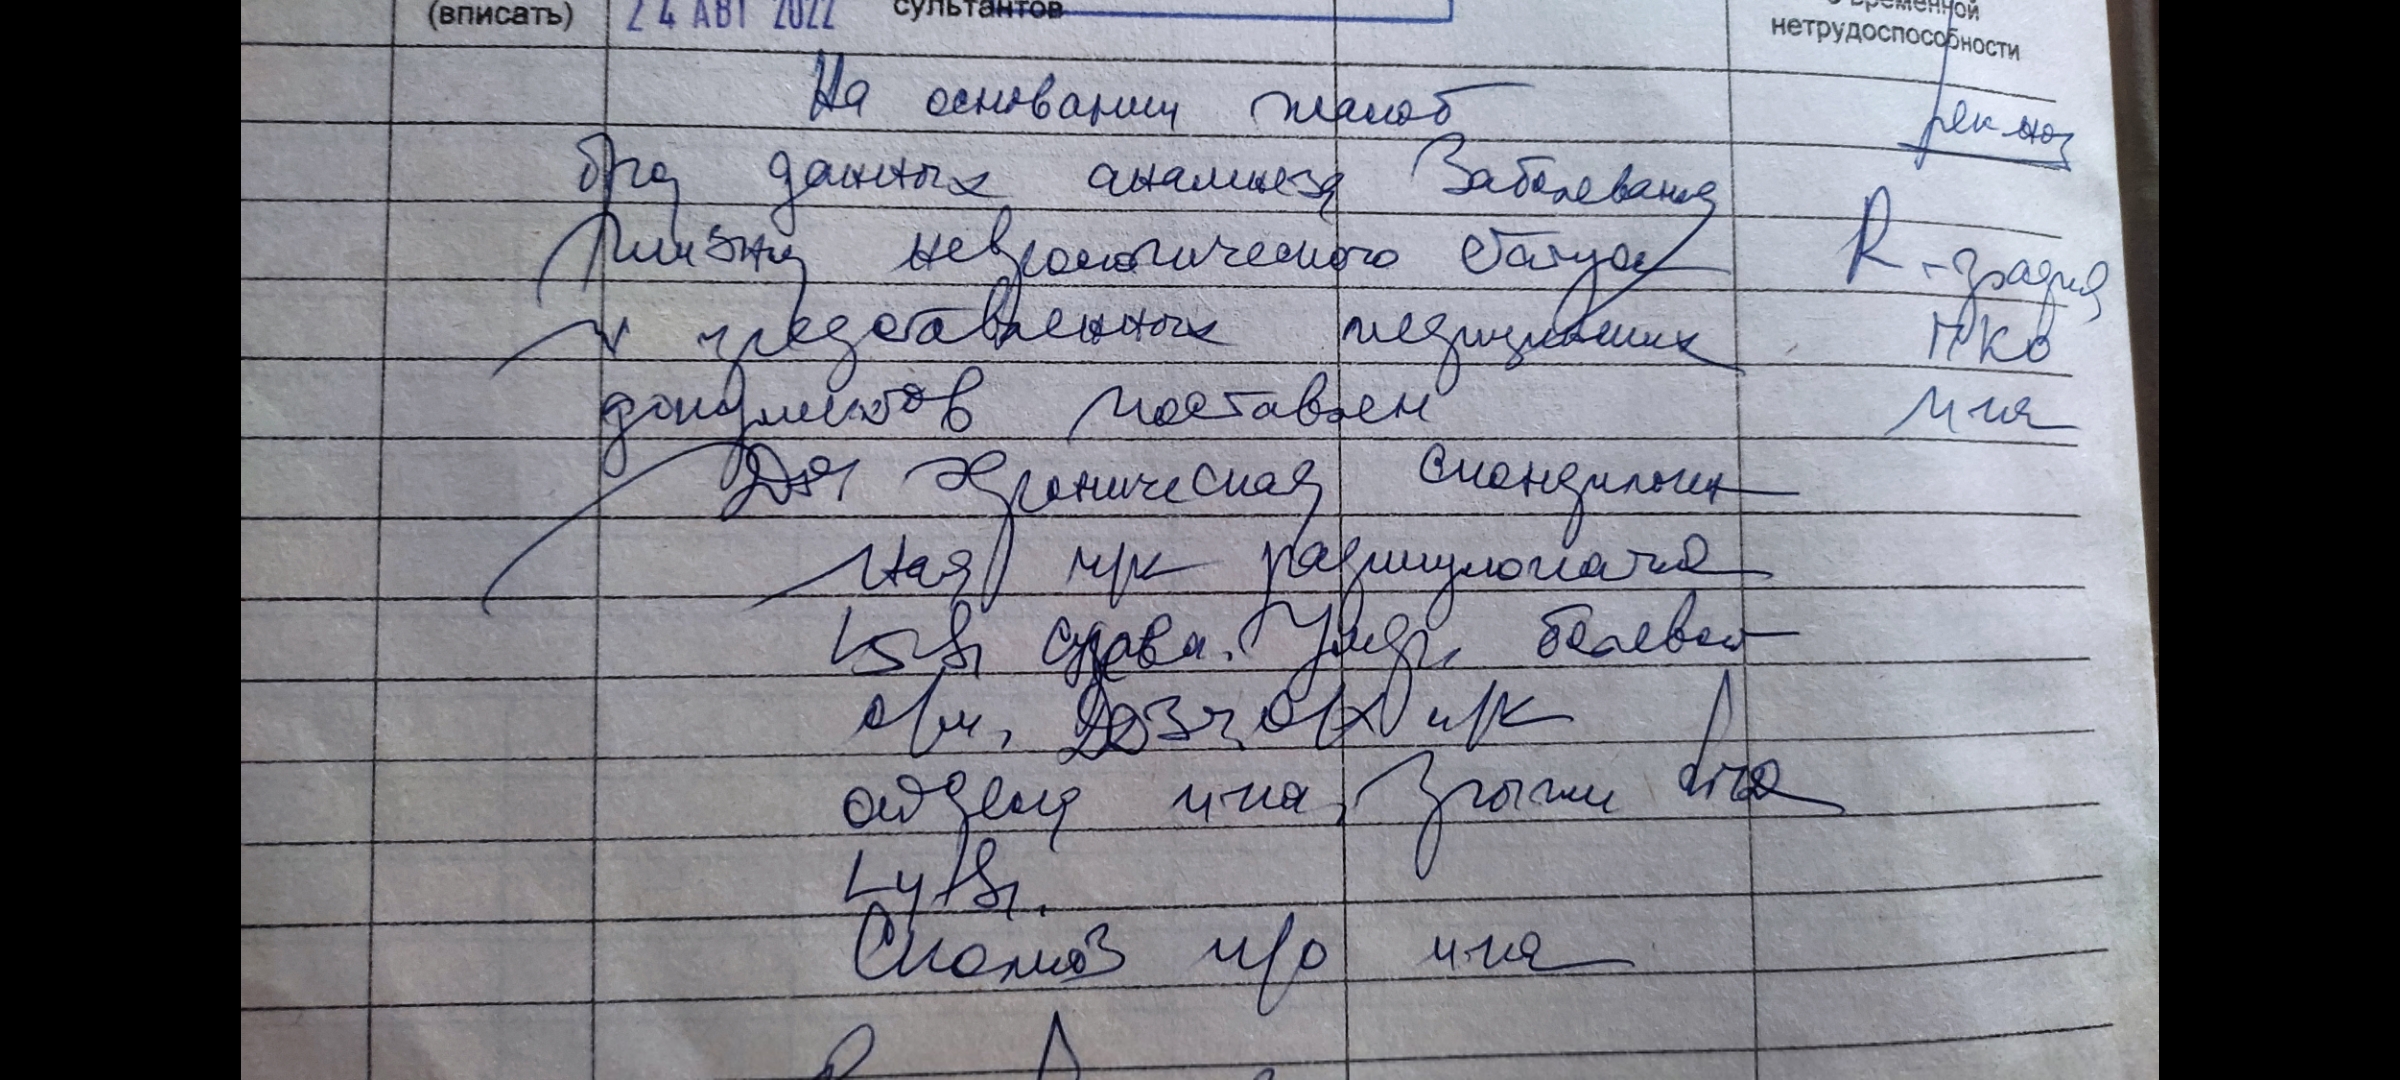 (вписать) 24 АВГ 2022 сультантов временной
нетрудоспособности
На основании жалоб
б-го данных анамнеза заболевания
неврологического статуса
и представленных медицинских
документов поставлен
Дз: Хроническая спондилоген
ная п/к радикулопатия
L5 S1 справа. Умер. болевой
с/м. ДДЗП п/к
отдела п-ка, Грыжи
L4 S1.
Сколиоз п/о п-ка
R-графия
ПКО
п-ка